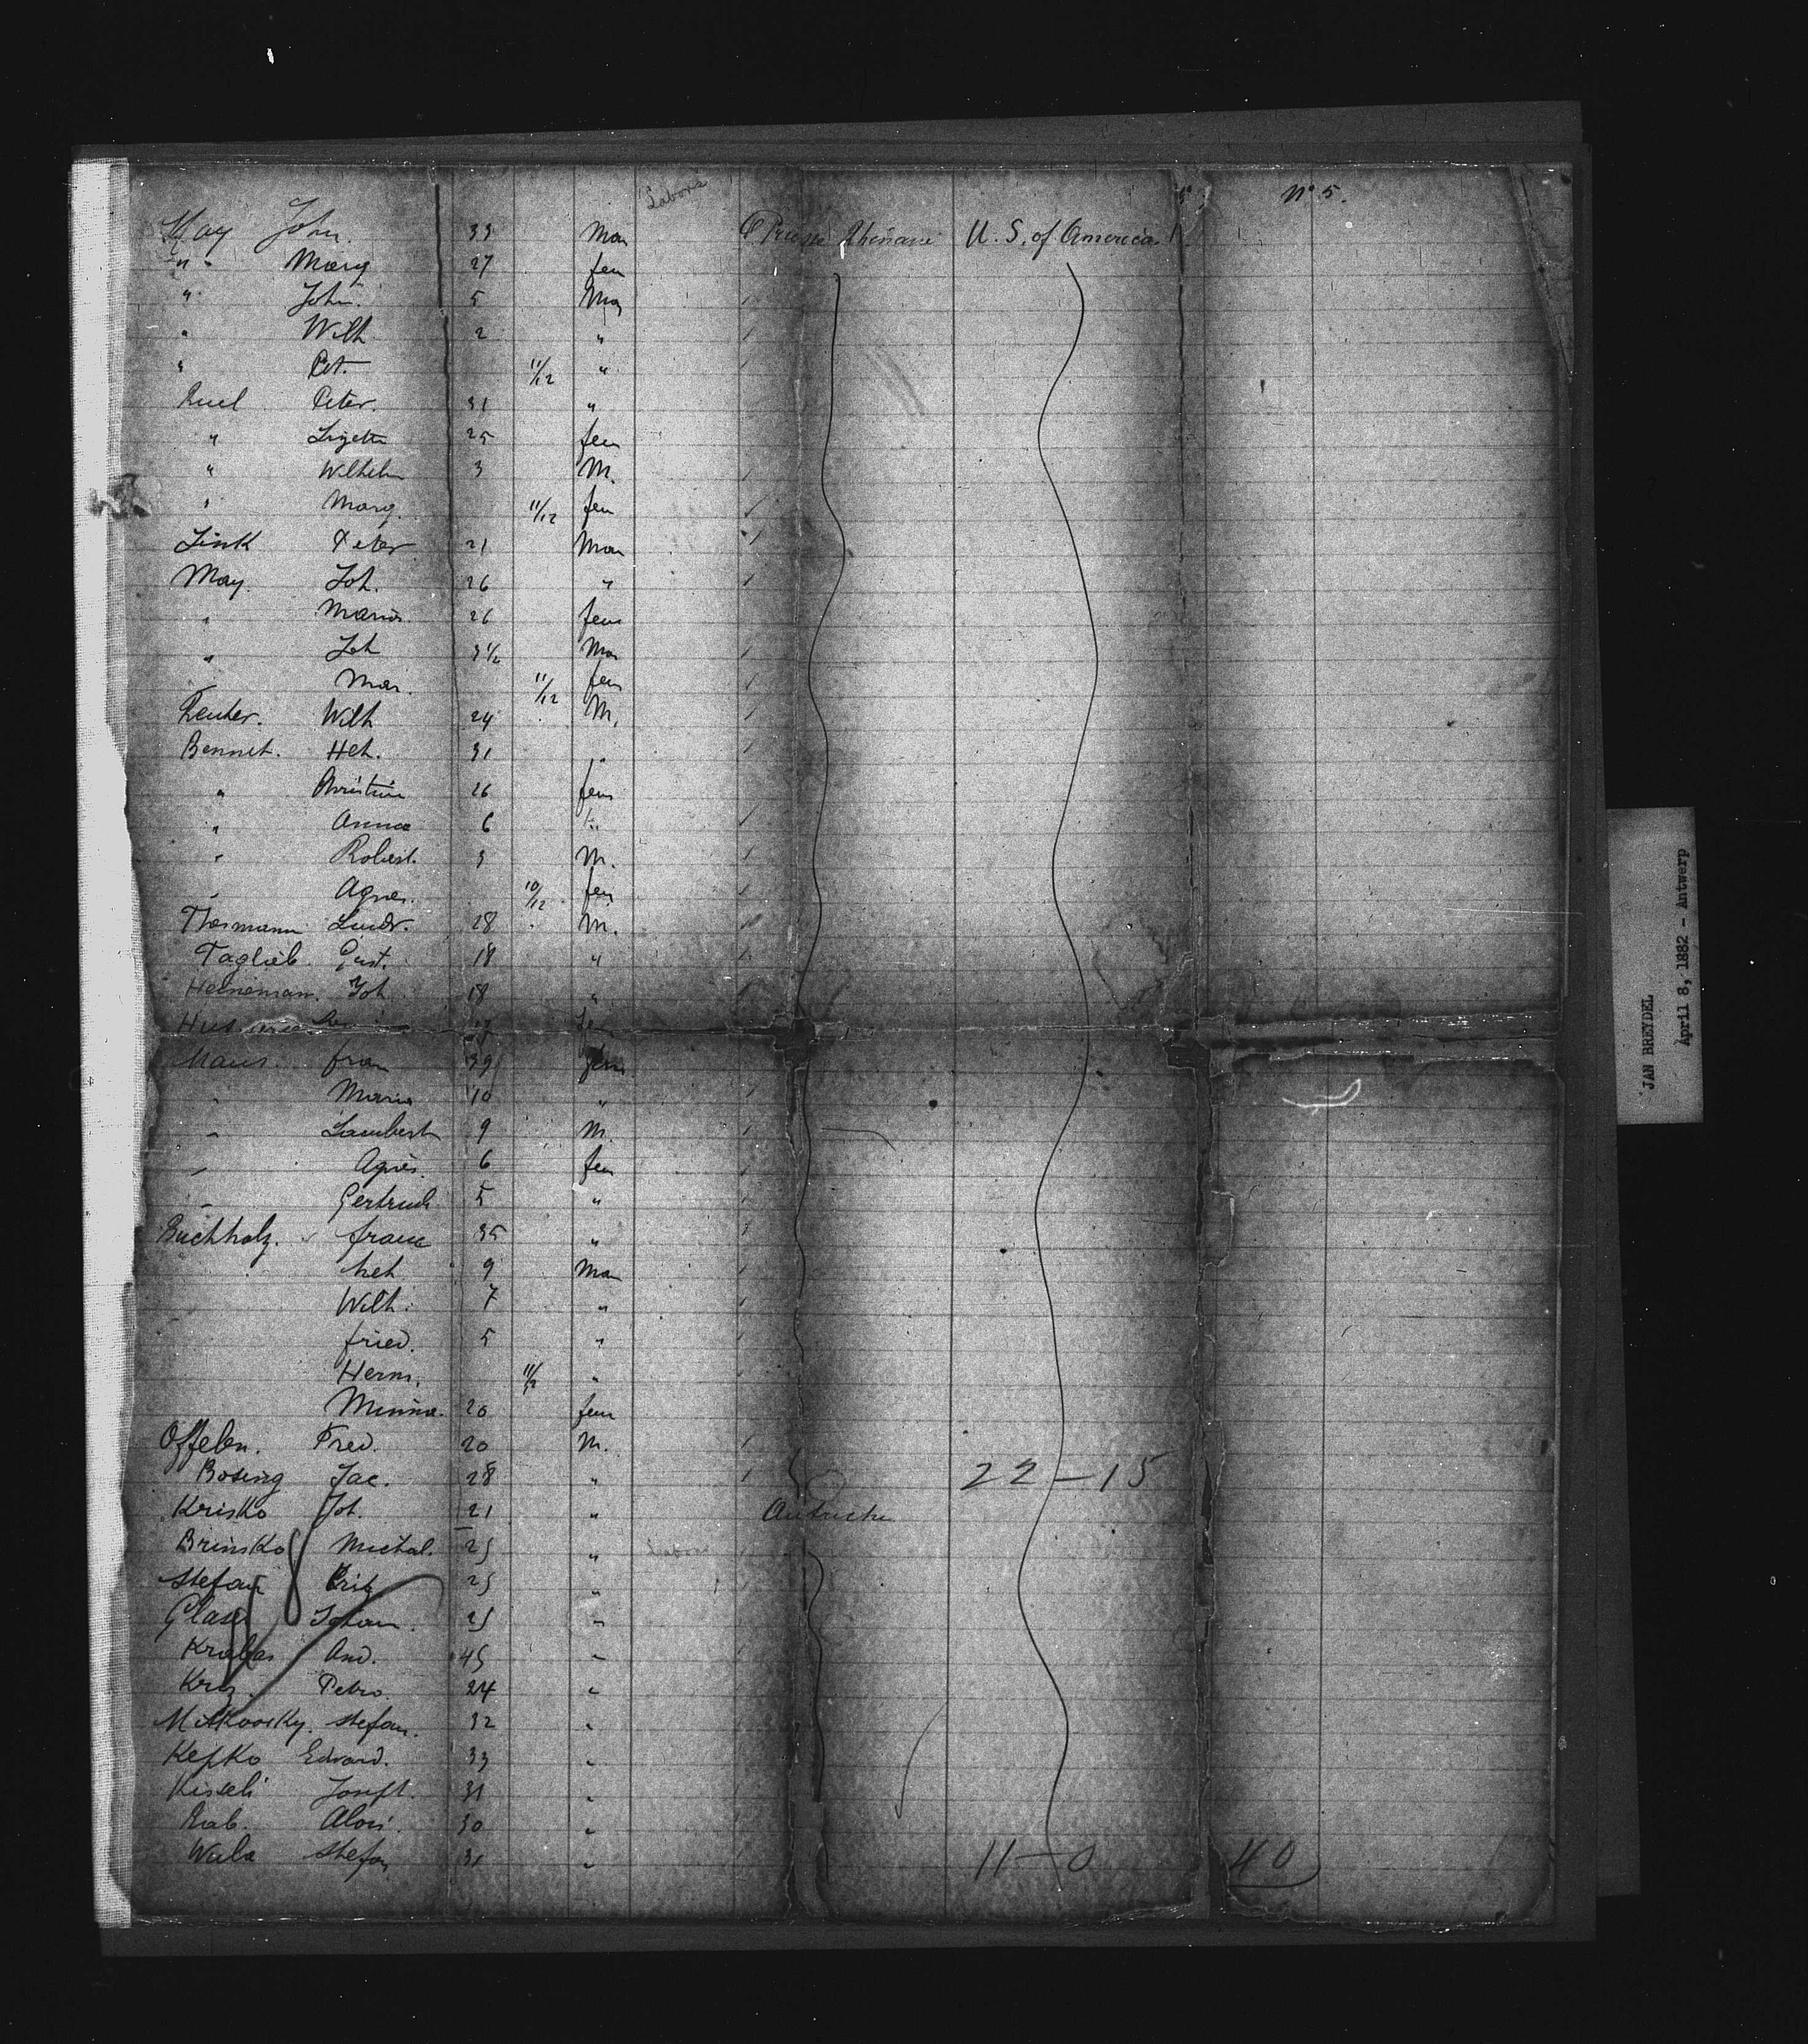 Labore
Nº 5.
May John. 33 Man Prusse Rhenane U. S. of America
" Mary 27 fem
" John. 5 Man
" Wilh 2 "
" Pet. 11/12 "
Ruel Peter. 31 "
" Lizette 25 fem
" Wilhelm 3 M.
" Marg. 11/12 fem
Link Peter 21 Man
May. Joh. 26 "
" Maria 26 fem
" Joh 3 1/2 Man
" Mar. 11/12 fem
Reuter. Wilh 24 M.
Bennet. Hch. 31 "
" Christine 26 fem
" Anna 6 "
" Robert. 3 M.
" Agnes. 10/12 fem
Thesmann Ludr. 28 M.
Taglieb. Gust. 18 "
Heineman. Joh 18 "
27 fem
Maus. frau 39 fem
" Maria 10 "
" Lambert 9 M.
" Agnes. 6 fem
" Gertrud. 5 "
Buchholz. frau 35 "
hch 9 Man
Wilh. 7 "
fried. 5 "
Herm. 11/12 "
Minna. 20 fem
Offelen. Fred. 20 M.
Bosing Jac. 28 " 22 — 15
Krisko Joh. 21 " Autriche
Brinsko Michal. 25 " Labore
Stefan 25 "
Glaser Johan. 25 "
Krabas And. 45 "
Kraz. Petro. 24 "
Mitkovsky. Stefan. 32 "
Kepko Edward. 33 "
Kisseli Joseph. 31 "
Rab. Alois. 30 "
Wula Stefan 31 " 11 — 0 40
JAN BREYDEL
April 8, 1882 - Antwerp